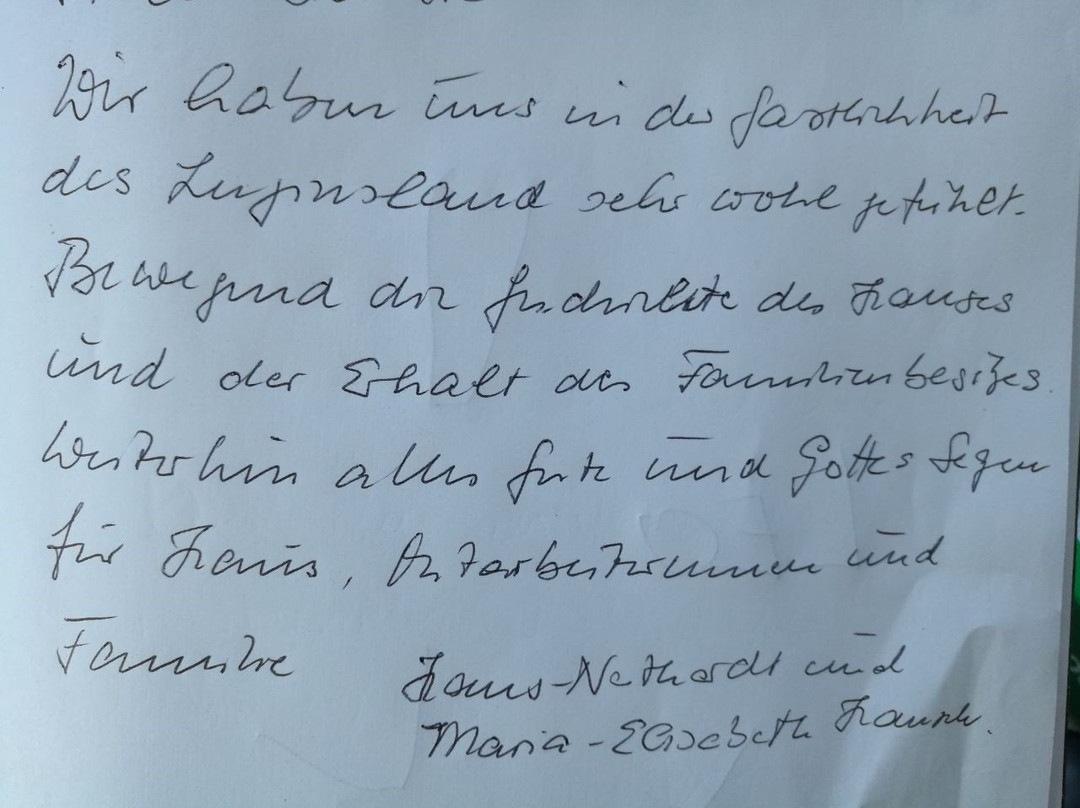 Wir haben uns in der Gastlichkeit
des Luginsland sehr wohl gefühlt.
Bewegend die Geschichte des Hauses
und der Erhalt des Familienbesitzes.
Weiterhin alles Gute und Gottes Segen
für Haus, Mitarbeiterinnen und
Familie
Hans- und
Maria-Elisabeth